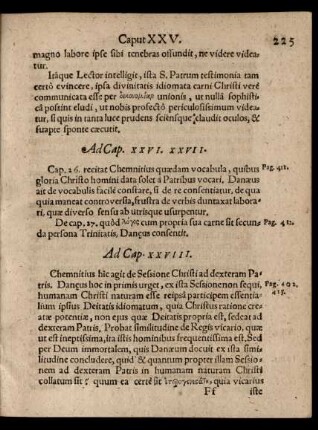 Caput XXV. 225
magno labore ipse sibi tenebras offundit, ne videre videa-
tur.
Itáque Lector intelligit, ista S. Patrum testimonia tam
certò evincere, ipsa divinitatis idiomata carni Christi verè
communicata esse per unionis, ut nullâ sophisti-
câ possint eludi, ut nobis profectò periculosissimum videa-
tur, si quis in tanta luce prudens sciénsque claudit oculos, &
suapte sponte cæcutit.
Ad Cap. XXVI. XXVII.
Cap. 26. recitat Chemnitius quædam vocabula, quibus
gloria Christo homini data solet à Patribus vocari. Danæus
ait de vocabulis facilè constare, si de re consentiatur, de qua
quia maneat controversia, frustra de verbis duntaxat labora-
ri, quæ diverso sensu ab utrisque usurpentur.
Pag. 411.
De cap. 27. quòd λόγος cum propria sua carne sit secun-
da persona Trinitatis, Danæus consentit.
Ad Cap. XXVIII.
Chemnitius hîc agit de Sessione Christi ad dexteram Pa-
tris. Danæus hoc in primis urget, ex ista Sessione non sequi,
humanam Christi naturam esse reipsâ participem essentia-
lium ipsius Deitatis idiomatum, quia Christus ratione cre-
atæ potentiæ, non ejus quæ Deitatis propria est, sedeat ad
dexteram Patris, Probat similitudine de Regis vicario, quæ
ut est ineptissima, ita istis hominibus frequentissima est, Sed
per Deum immortalem, quis Danæum docuit ex ista simi-
litudine concludere, quid & quantum propter illam Sessio-
nem ad dexteram Patris in humanam naturam Christi
collatum sit? quum ea certè sit quia vicarius
Ff iste